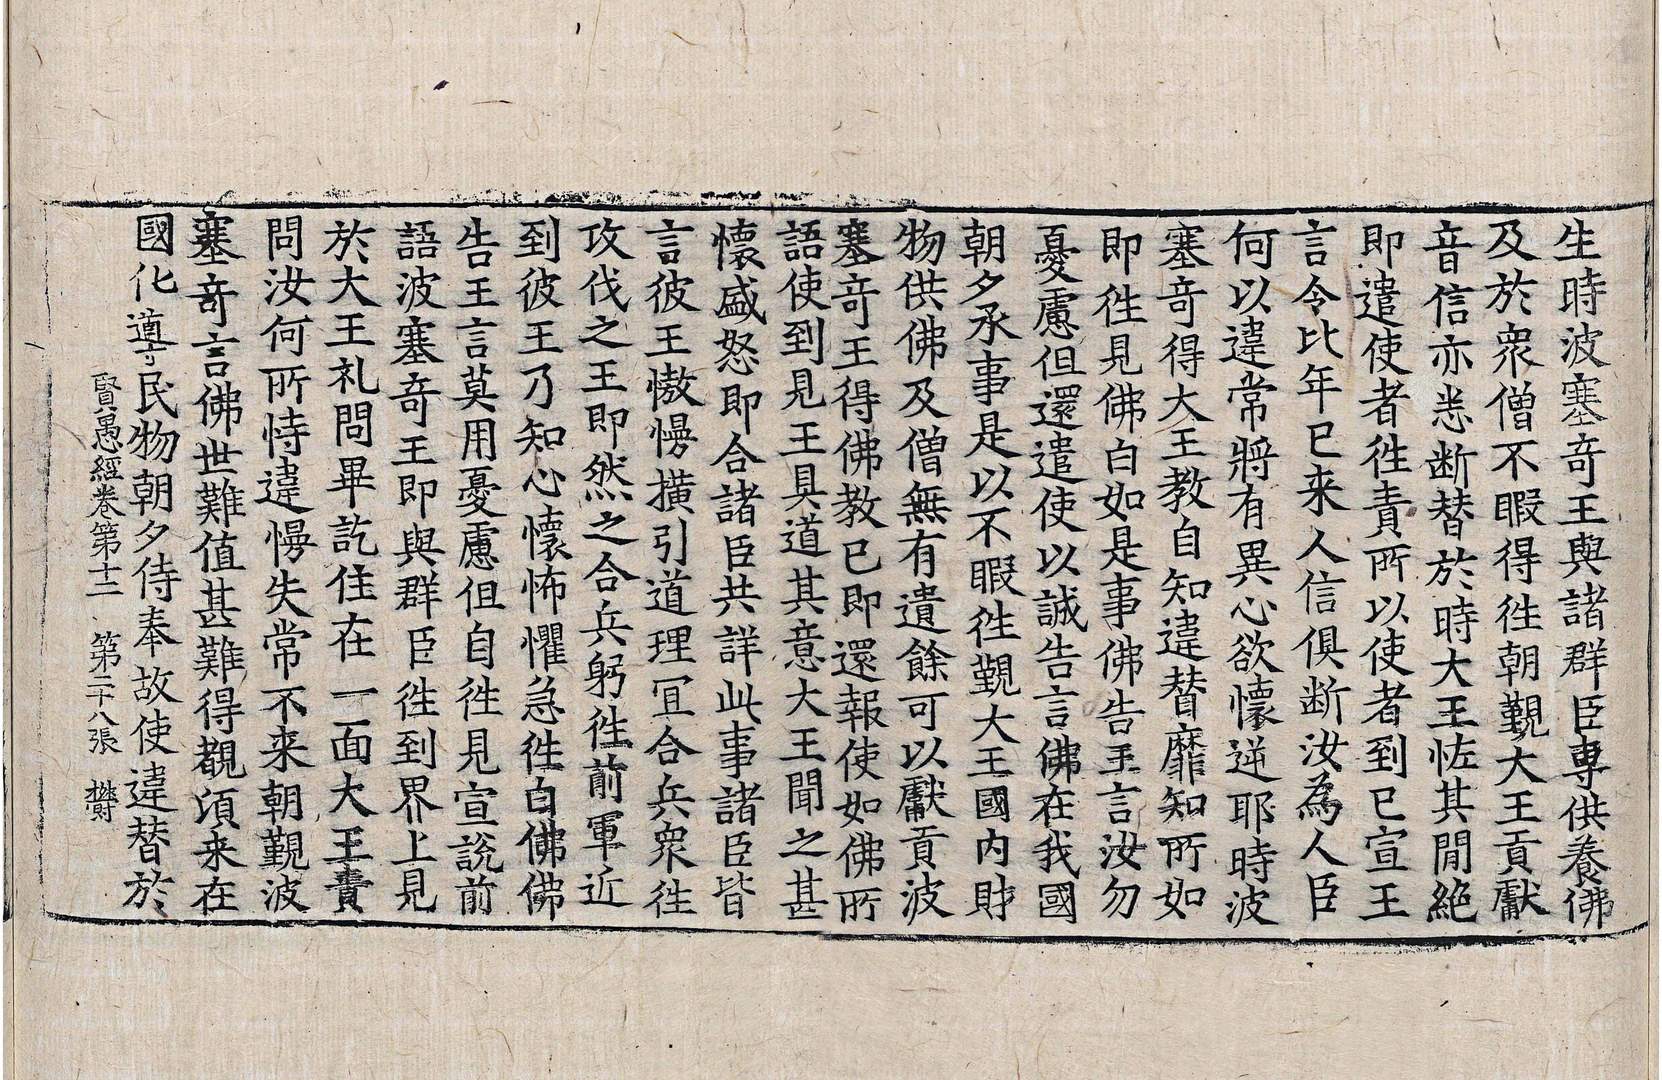 生時波塞奇王與諸群臣專供養佛
及於衆僧不暇得徃朝覲大王貢獻
音信亦悉断替於時大王恠其閒絶
即遣使者徃責所以使者到已宣王
言令比年已来人信俱断汝為人臣
何以違常將有異心欲懷逆耶時波
塞奇得大王教自知違替靡知所如
即徃見佛白如是事佛告王言汝勿
憂慮但還遣使以誠告言佛在我國
朝夕承事是以不暇徃覲大王國内財
物供佛及僧無有遺餘可以獻貢波
塞奇王得佛教已即還報使如佛所
語使到見王具道其意大王聞之甚
懷盛怒即合諸臣共詳此事諸臣皆
言彼王慠慢橫引道理冝合兵衆徃
攻伐之王即然之合兵躬徃前軍近
到彼王乃知心懷怖懼急徃白佛佛
告王言莫用憂慮但自徃見宣說前
語波塞奇王即與群臣徃到界上見
於大王礼問畢訖住在一面大王責
問汝何所恃違慢失常不来朝覲波
塞奇言佛世難值甚難得覩湏来在
國化導民物朝夕侍奉故使違替於
賢愚經卷第十二　第二十八張　欝